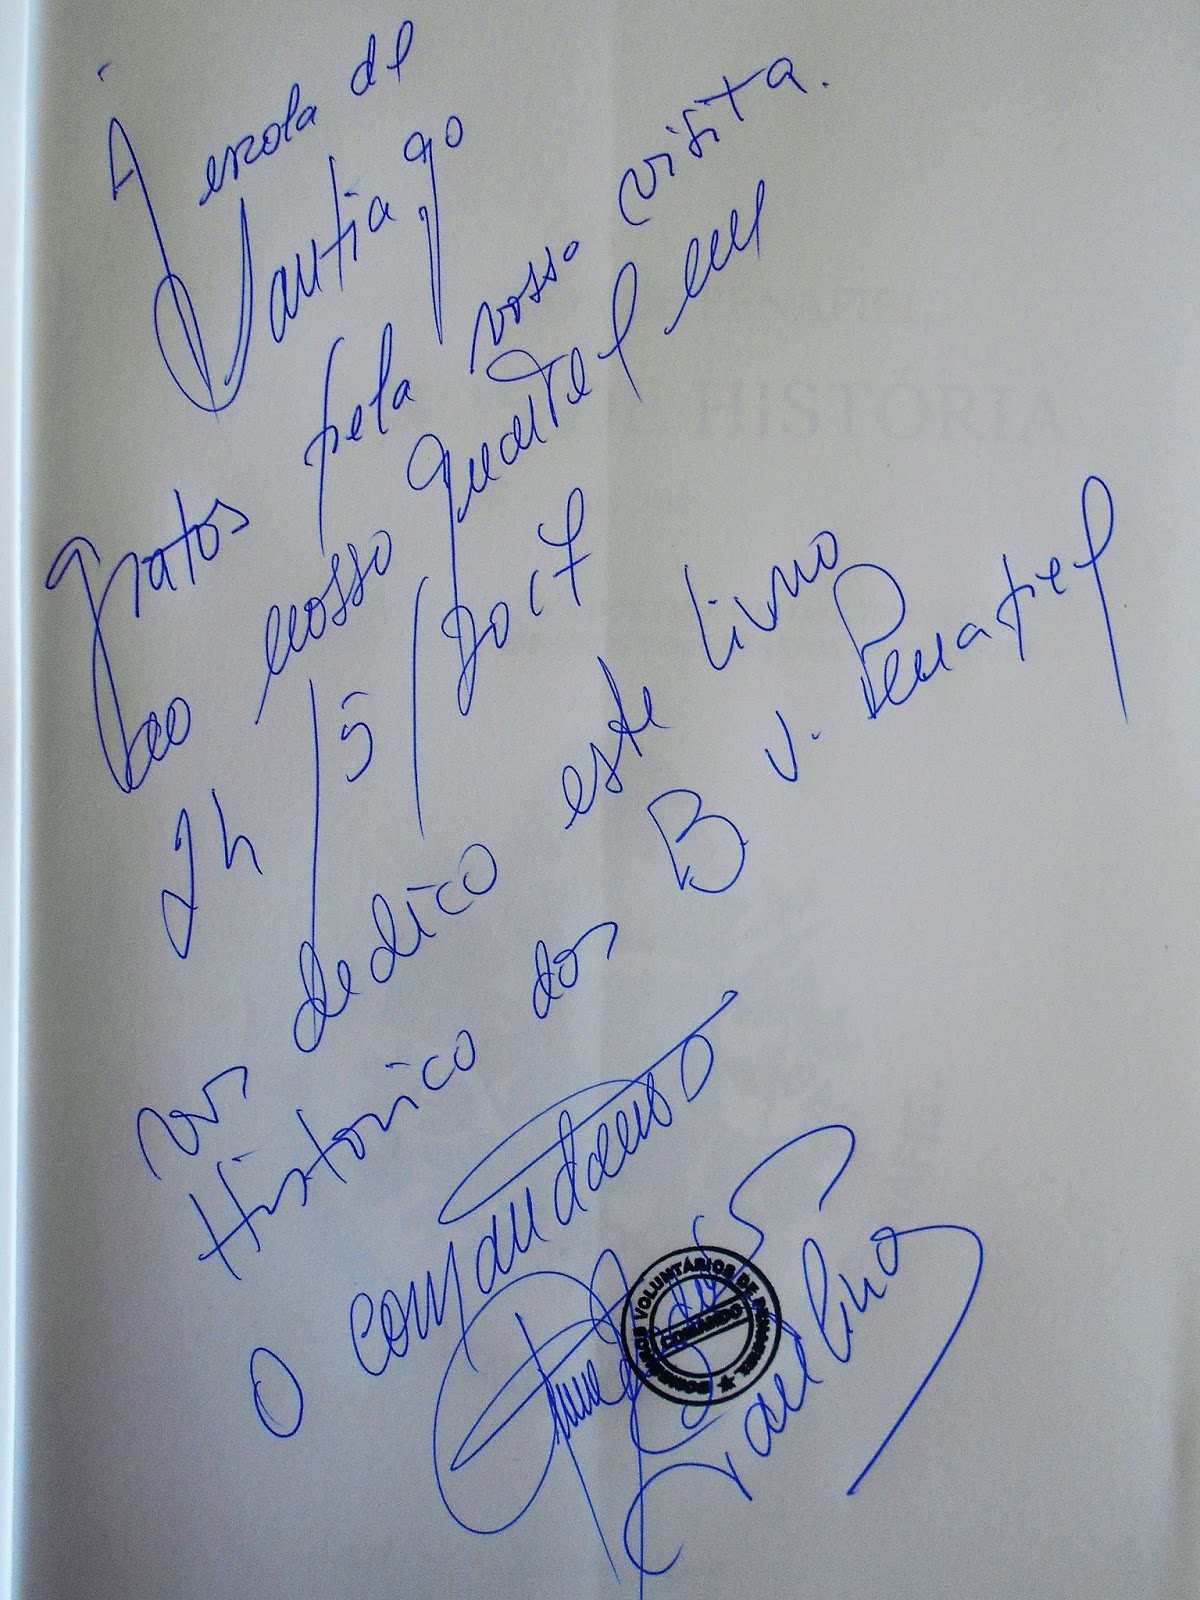 À escola de
Santiago
Gratos pela vossa visita.
ao nosso quartel em
24/5/2017
vos dedico este livro
Historico dos B V. Penafiel
O comandante
BOMBEIROS VOLUNTÁRIOS DE PENAFIEL
COMANDO
HISTÓRIA